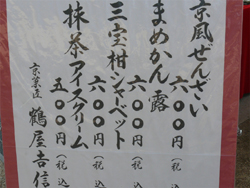 京風ぜんざい
六〇〇円(税込
まめかん 露
六〇〇円(税込
三宝柑シャーベット
六〇〇円(税込
抹茶アイスクリーム
五〇〇円(税込
京菓匠 鶴屋吉信